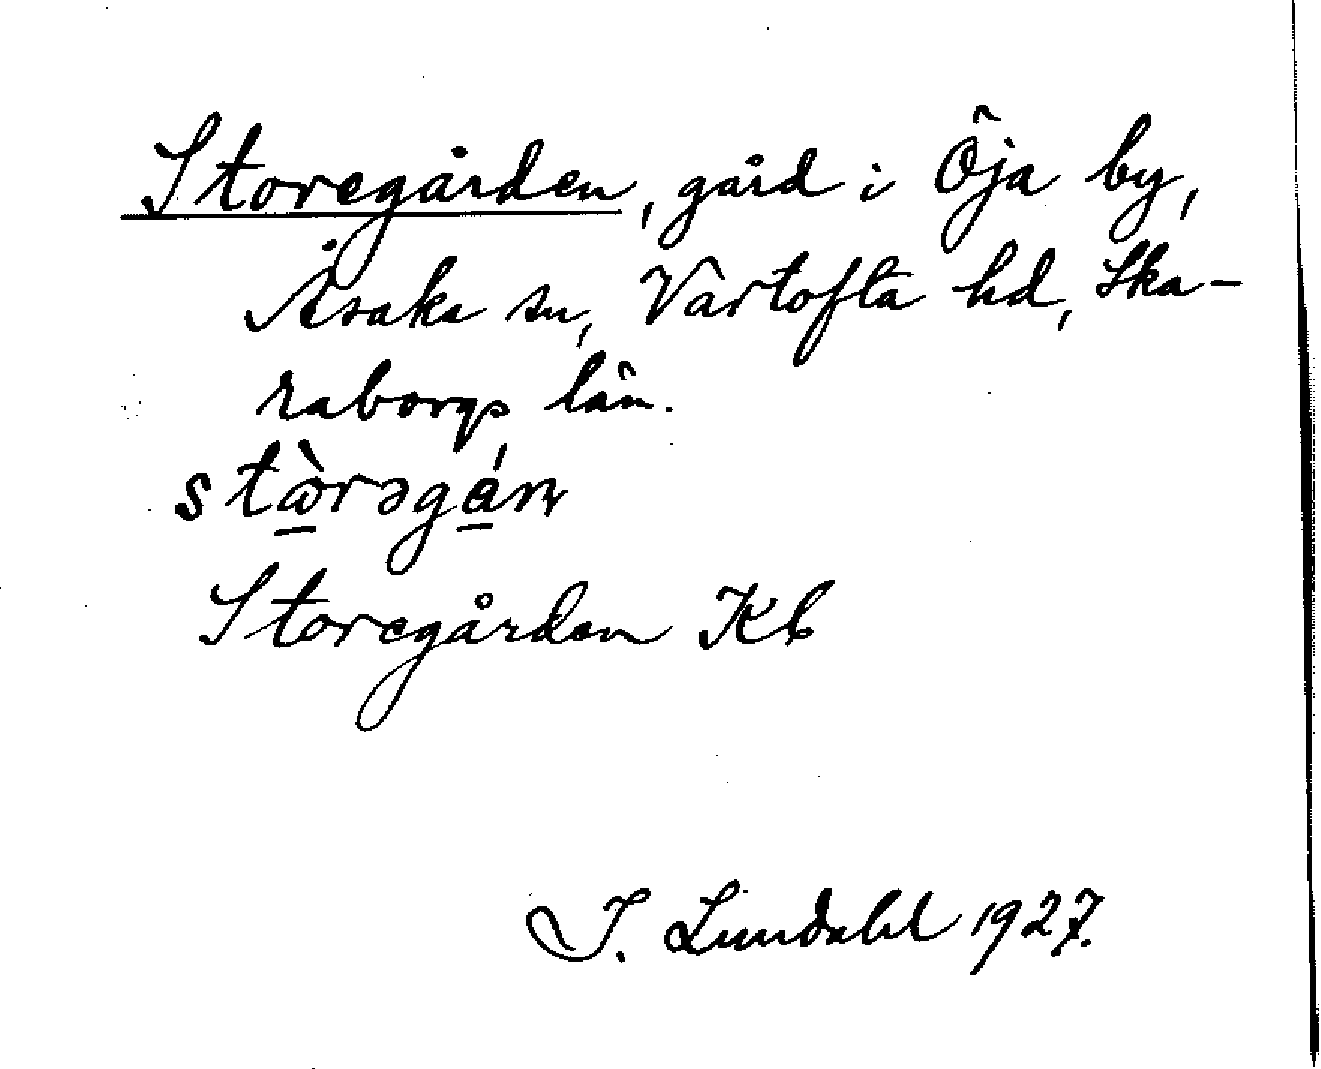 Storegården, gård i Öja by,
Åsaka sn, Vartofta hd, Ska-
raborgs län.
stὼ̲rəgá̲ɳ
Storegården Kb
I. Lundahl 1927.